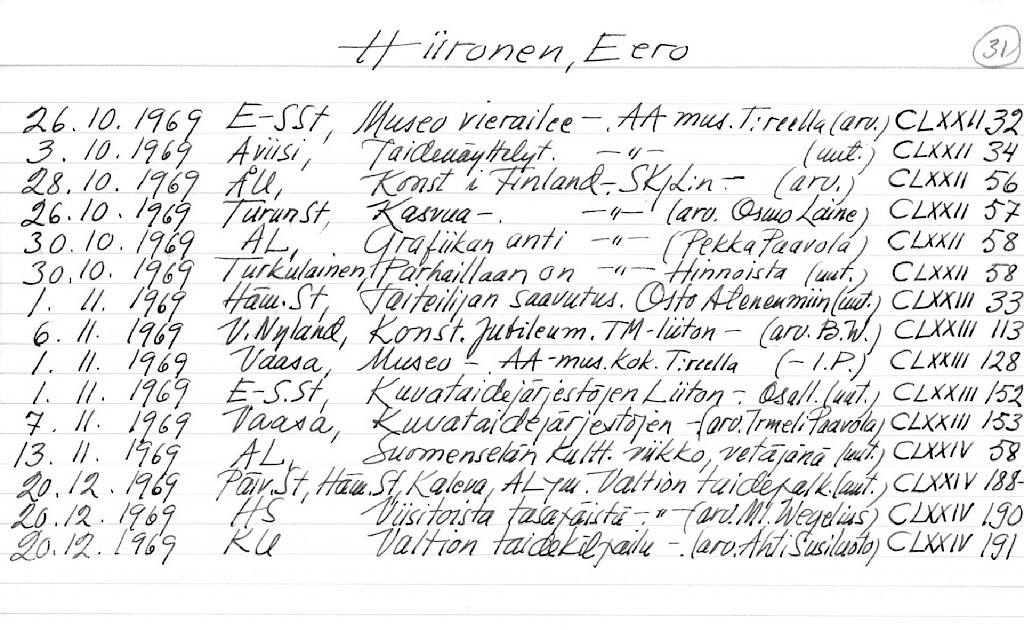 Hiironen, Eero 31
26.10.1969 E-SSt, Museo vierailee -. AA mus. T:reella (arv.) CLXXII 32
3.10.1969 Aviisi, Taidenäyttelyt. -"- (uut.) CLXXII 34
28.10.1969 ÅU, Konst i Finland -. SKjL:n - (arv.) CLXXII 56
26.10.1969 TurunSt, Kasvua -. -"- (arv. Osmo Laine) CLXXII 57
30.10.1969 AL, Grafiikan anti -"- (Pekka Paavola) CLXXII 58
30.10.1969 Turkulainen, Parhaillaan on -"- Hinnoista (uut.) CLXXII 58
1.11.1969 Häm.St, Taiteilijan saavutus. Osto Ateneumiin (uut.) CLXXIII 33
6.11.1969 V.Nyland, Konst. Jubileum. TM-liiton - (arv. B.W.) CLXXIII 113
1.11.1969 Vaasa, Museo -. AA-mus. kok. T:reella (- I.P.) CLXXIII 128
1.11.1969 E-S.St, Kuvataidejärjestöjen Liiton -. Osall. (uut.) CLXXIII 152
7.11.1969 Vaasa, Kuvataidejärjestöjen - (arv. Irmeli Paavola) CLXXIII 153
13.11.1969 AL, Suomenselän kultt. viikko, vetäjänä (uut.) CLXXIV 58
20.12.1969 Päiv.St, Häm.St, Kaleva, AL ym. Valtion taidepalk. (uut.) CLXXIV 188-
20.12.1969 HS Viisitoista tasapäistä -. "- (arv. M. Wegelius) CLXXIV 190
20.12.1969 KU Valtion taidekilpailu -. (arv. Ahti Susiluoto) CLXXIV 191